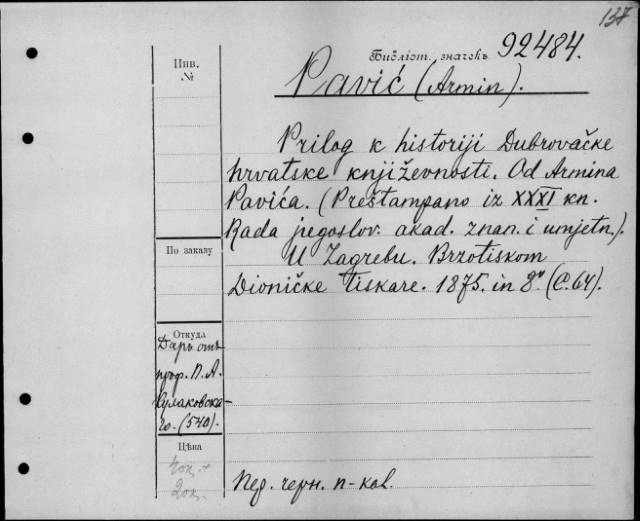 137
Библіот. значекъ 92484.
Pavić (Armin).
Инв.
№
Prilog k historiji Dubrovačke
hrvatske književnosti. Od Armina
Pavića. (Preštampano iz XXXI kn.
Rada jugoslov. akad. znan. i umjetn.).
U Zagrebu. Brzotiskom
Dioničke tiskare. 1875. in 8º (C. 64).
По заказу
Откуда
Даръ отъ
проф. П. А.
Кулаковска-
го. (540).
Цѣна
2оц.
Пер. черн. п-кол.